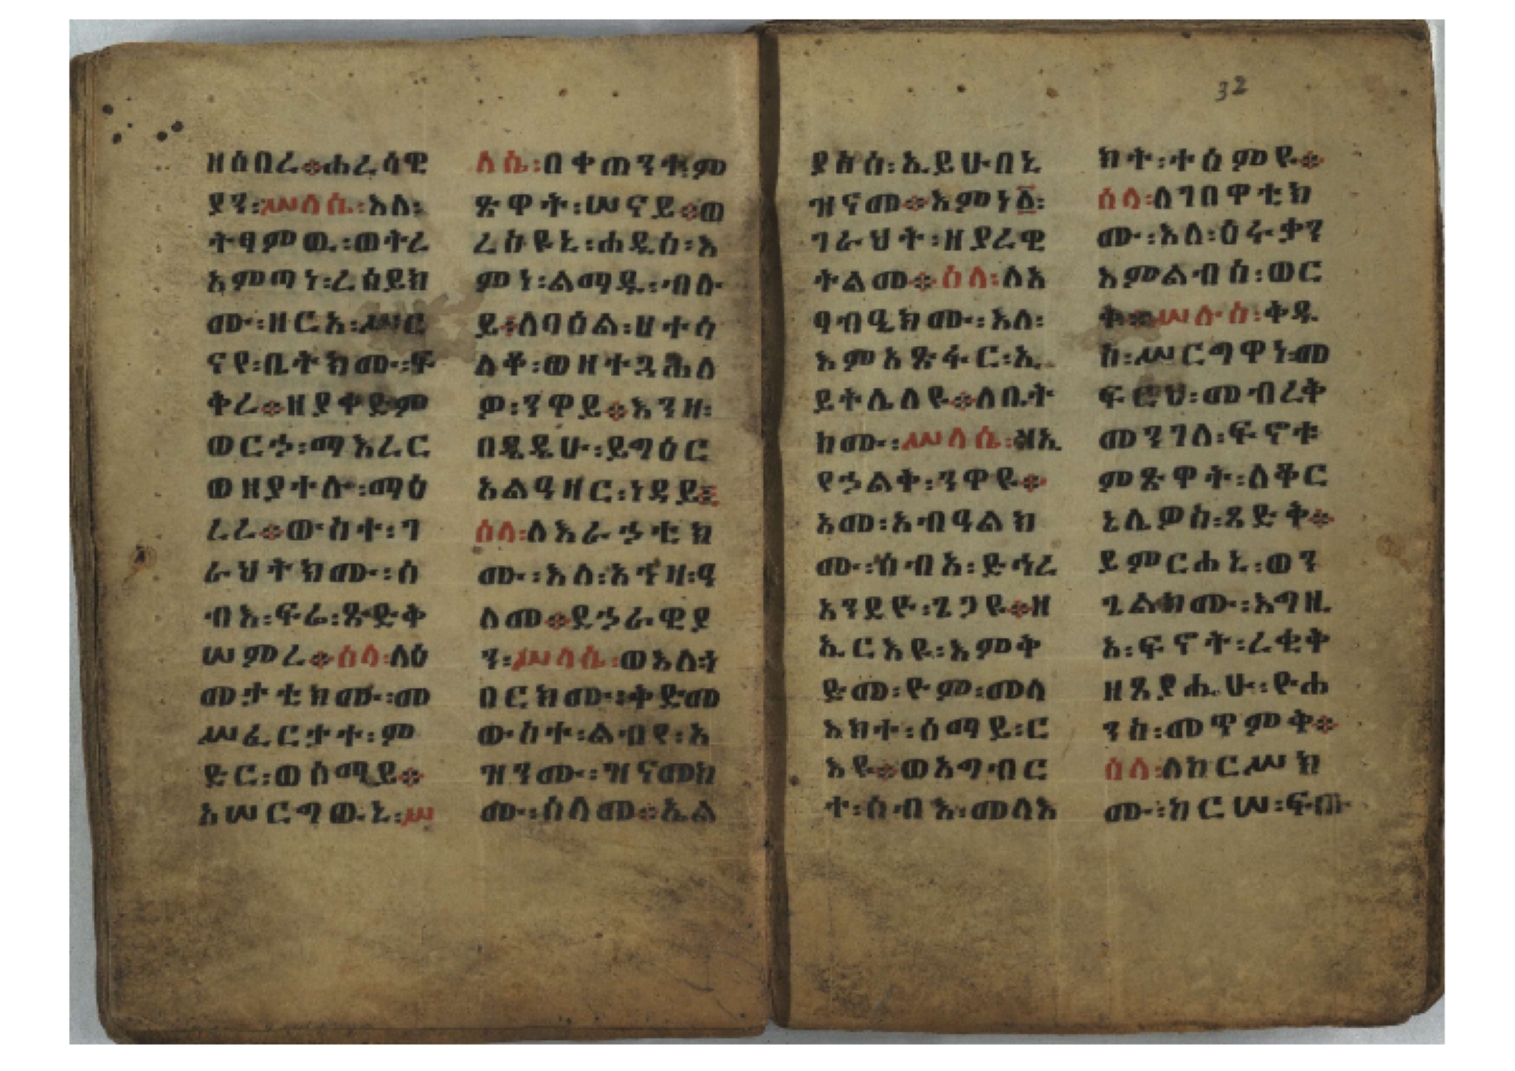 ዘሰበረ፨ሐረሳዊ
ያን፡ሥላሴ፡እለ፡
ትፃምዉ፡ወትረ
እምጣነ፡ረዐይክ
ሙ፡ዘርአ፡ሥር
ናየ፡ቤትክሙ፡ቾ
ቅረ፨ዘያቀድም
ወርኀ፡ማእረር
ወዘያተሉ፡ማዕ
ረረ፨ውስተ፡ገ
ራህትክሙ፡ሰ
ብአ፡ፍሬ፡ጽድቅ
ሠምረ፨ሰላ፡ለዕ
መታቲክሙ፡መ
ሥፈርታተ፡ም
ድር፡ወሰማይ፨
አሠርግዉኒ፡ሥ
ላሴ፡በቀጠንተ፡ም
ጽዋት፡ሠናይ፨ወ
ረስዩኒ፡ሐዲስ፡እ
ምነ፡ልማዱ፡ብሉ
ይ፡ለባዕል፡ሀተሰ
ልቆ፡ወዘተጓሕለ
ዎ፡ንዋይ፨እንዘ፡
በዲዴሁ፡ይግዕር
አልዓዛር፡ነዳይ፨
ሰላ፡ለእራኃቲክ
ሙ፡እለ፡አኀዛ፡ዓ
ለመ፨ደኃራዊያ
ን፡ሥላሴ፡ወእለ፡ነ
በርክሙ፡ቅድመ
ውስተ፡ልብየ፡አ
ዝንሙ፡ዝናመክ
ሙ፡ሰላመ፨ኤል
ያስሰ፡ኢይሁበኒ
ዝናመ፨እምነ፩፡
ገራህት፡ዘያረዊ
ትልመ፨ሰላ፡ለአ
ፃብዒክሙ፡እለ፡
እምአጽፋር፡ኢ
ይትሌለዩ፨ለቤት
ክሙ፡ሥላሴ፡ዘኢ
የኃልቅ፡ንዋዩ፨
አመ፡አብዓልክ
ሙ፡ሰብአ፡ድኅረ
አንደዩ፡ጌጋዩ፨ዘ
ኢርእዩ፡እምቅ
ድመ፡ዮም፡መላ
እክተ፡ሰማይ፡ር
እዩ፨ወአግብር
ተ፡ሰብእ፡መላእ
ክት፡ተሰምዩ፨
ሰላ፡ለገበዋቲክ
ሙ፡እለ፡ዕሩቃን
እምልብስ፡ወር
ቅ፨ሥሉስ፡ቅዱ
ስ፡ሥርግዋነ፡መ
ፍርህ፡መብረቅ
መንገለ፡ፍኖቱ
ምጽዋት፡ለቾር
ኔሌዎስ፡ጻድቅ፨
ይምርሐኒ፡ወን
ጌልክሙ፡እግዚ
አ፡ፍኖት፡ረቂቅ
ዘጼያሒሁ፡ዮሐ
ንስ፡መጥምቅ፨
ሰላ፡ለከርሥክ
ሙ፡ከርሠ፡ፍጡ
32